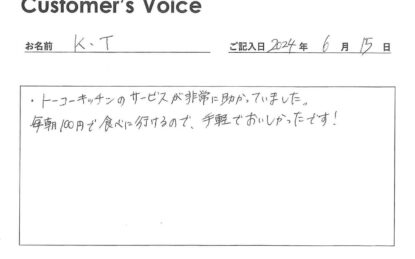 Customer's Voice
お名前 K.T ご記入日 2024 年 6 月 15 日
・トーコーキッチンのサービスが非常に助かっていました。
毎朝100円で食べに行けるので、手軽でおいしかったです!